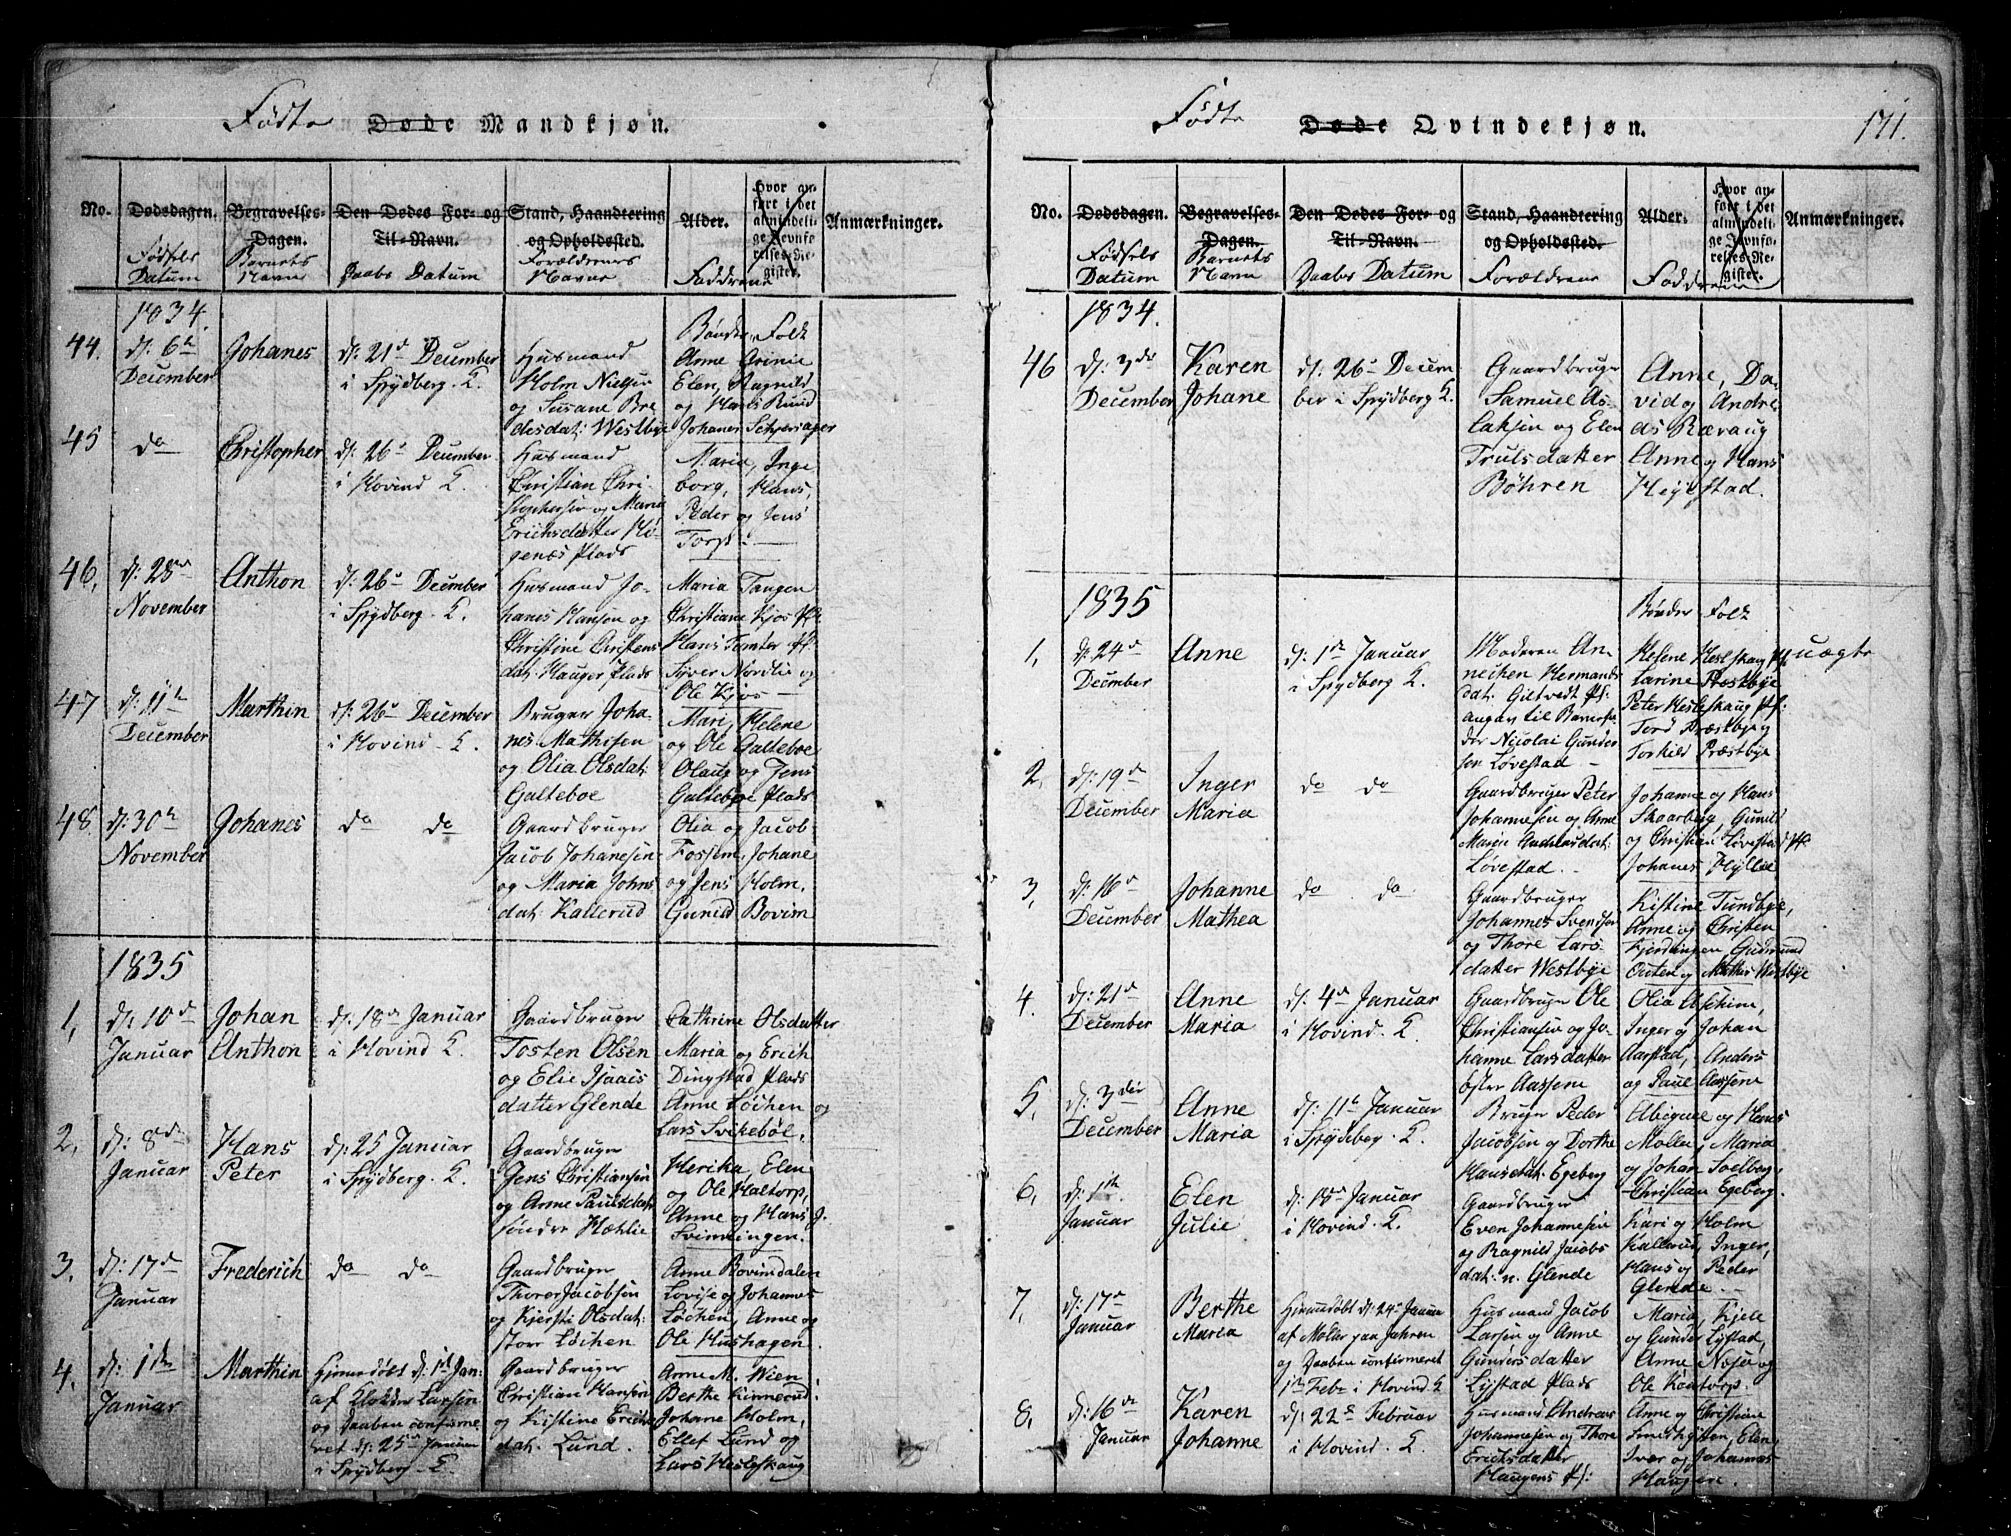 Fødte Døde Mandkjøn.
No.
Dødsdagen.
Fødsels
Datum
Begravelses-
Dagen.
Barnets
Navne
Den Dødes For- og
Til-Navn.
Daabs Datum
Stand, Haandtering
og Opholdssted.
Forældrenes
Navne
Alder.
Faddrene
Hvor an-
ført i det
almindeli-
ge Jevnfø-
relses-Re-
gister.
Anmærkninger.
1834.
44.
d: 6te
December
Johanes
d: 21de December
i Spydberg K.
Husmand
Holm Nielsen
og Susane Bre
desdat: Westbye
Bønder Folk
Anne Grinie
Elen, Ragnild
og Hans Ruud
Johanes Schjersager
45
do
Christopher
d: 26de December
i Hovind K.
Husmand
Christian Chri-
stophersen og Marie
Erichsdatter Hø-
genæs Plads
Maria, Inge
borg, Hans,
Peder og Jens
Torp.
46.
d: 28de
November
Anthon
d: 26de December
i Spydberg. K.
Husmand Jo-
hanes Hansen og
Christine Christens
dat: Hauger Plads
Maria Tangen
Christiane Kjos
Hans Tomter
Syver Nordlie og
Ole Kjos
47
d: 11te
December
Marthin
d: 26de December
i Hovind K.
Bruger Joha-
nes Mathisen
og Olia Olsdat:
Galteboe
Mari, Helene
og Ole Galteboe
Olaug og Jens
Galteboe Plads
48
d: 30te
November
Johanes
do do
Gaardbruger
Jacob Johanesen
og Maria Johns
dat: Kallerud
Olia og Jacob
Fossem, Johane
og Jens Holm,
Gunild Bovim
1835
1,
d: 10de
Januar
Johan
Anthon
d: 18de Januar
i Hovind K.
Gaardbruger
Tosten Olsen
og Elie Isaacs
datter Glende
Cathrine Olsdatter
Maria og Erich
Dingstad Plads
Anne Løchen og
Lars Svikebøl,
2,
d: 8de
Januar
Hans
Peter
d: 25 Januar
i Spydberg. K.
Gaardbruger
Jens Christiansen
og Anne Paulsdat
søndre Hæhlie
Herika, Elen
og Ole Haltorp,
Anne og Hans J.
Svinningen.
3,
d: 17de
Januar
Frederich
do do
Gaardbruger
Thorer Jacobsen
og Kjersti Olsdat:
store Løchen
Anne Bovimdalen
Lovise og Johannes
Løchen, Anne og
Ole Hushagen
4.
d: 1den
Januar
Marthin
Hjemmedøbt d: 1ste Jan:
af Klokker Larsen
og Daaben confirme-
ret d: 25de Januar
i Spydberg K.
Gaardbruger
Christian Hansen
og Kistine Erichs
dat: Lund.
Anne M. Wien
Berthe Kinnerud,
Johane Holm,
Ellef Lund og
Lars Hesleskaug
Fødte Døde Qvindekjøn.
171.
No.
Dødsdagen.
Fødsels
Datum
Begravelses-
Dagen.
Barnets
Navn
Den Dødes For- og
Til-Navn.
Daabes Datum
Stand, Haandtering
og Opholdssted.
Forældrene
Alder.
Faddrene
Hvor an-
ført i det
almindeli-
ge Jevnfø-
relses-Re-
gister.
Anmærkninger.
1834.
46
d: 3de
December
Karen
Johane
d: 26de Decem
ber i Spydberg K.
Gaardbruger
Samuel As-
laksen og Elen
Trulsdatter
Böhren
Anne, Da-
vid og Andre-
as Rævaug
Anne og Hans
Heyestad.
1835
1,
d: 24de
December
Anne
d: 1ste Januar
i Spydberg K.
Moderen An-
nechen Hermands
dat: Giltvedt Pl:
angav til Barnefa-
der Nicolai Gunder
sen Løvestad
Bønder Folk
Helene Heslskaug
Karine Præstbye
Peter Hesleskaug
Tord Præstbye og
Torkild Præstbye
uægte
2,
d: 19de
December
Inger
Maria
do do
Gaardbruger Peter
Johannesen og Anne
Marie Andersdat:
Løvestad.
Johanne og Hans
Skaarberg, Gunil
og Christian Løvestad
Johanes Hyllie
3,
d: 16de
December
Johanne
Mathea
do do
Gaardbruger
Johannes Svendsen
og Thore Lars
datter Westbye
Kistine Tundbye,
Anne og Christen
Fjerdingen Gudmund
Outen og Mathis Westbye
4.
d: 21de
December
Anne
Maria
d: 4de Januar
i Hovind. K.
Gaardbruger Ole
Christiansen og Jo-
hanne Larsdatter
øster Aassene
Olia Aschim,
Inger og Johan
Aarstad, Anders
og Paul Aassene
5,
d: 3die
December
Anne
Maria
d: 11te Januar
i Spydeberg. K.
Bruger Peder
Jacobsen og Dorthe
Hansdat: Egeberg
Abigael og Hans
Moller, Maria
og Johan Soelberg,
Christian Egeberg.
6,
d: 1ste
Januar
Elen
Julie
d: 18de Januar
i Hovind. K.
Gaardbruger
Even Johannesen
og Ragnild Jacobs
dat: n. Glende
Kari og Holm
Kallerud, Inger,
Hans og Peder
Glende.
7,
d: 17de
Januar
Berthe
Maria
Hjemmedøbt d: 24de Januar
af Moller paa Jahren
og Daaben confirmeret
1ste Feb: i Hovind K
Husmand Jacob
Larsen og Anne
Gundersdatter
Lystad Plads
Maria, Kjele
og Gunder Lystad,
Anne Næsen og
Ole Kaatorp.
8,
d: 16de
Januar
Karen
Johanne
d: 22de Februar
i Hovind. K.
Husmand Andreas
Johannesen og Thore
Erichsdatter
Haugens Pl:
Anne og Christian
Smedhytten, Elen,
Iver og Johannes
Haugen.